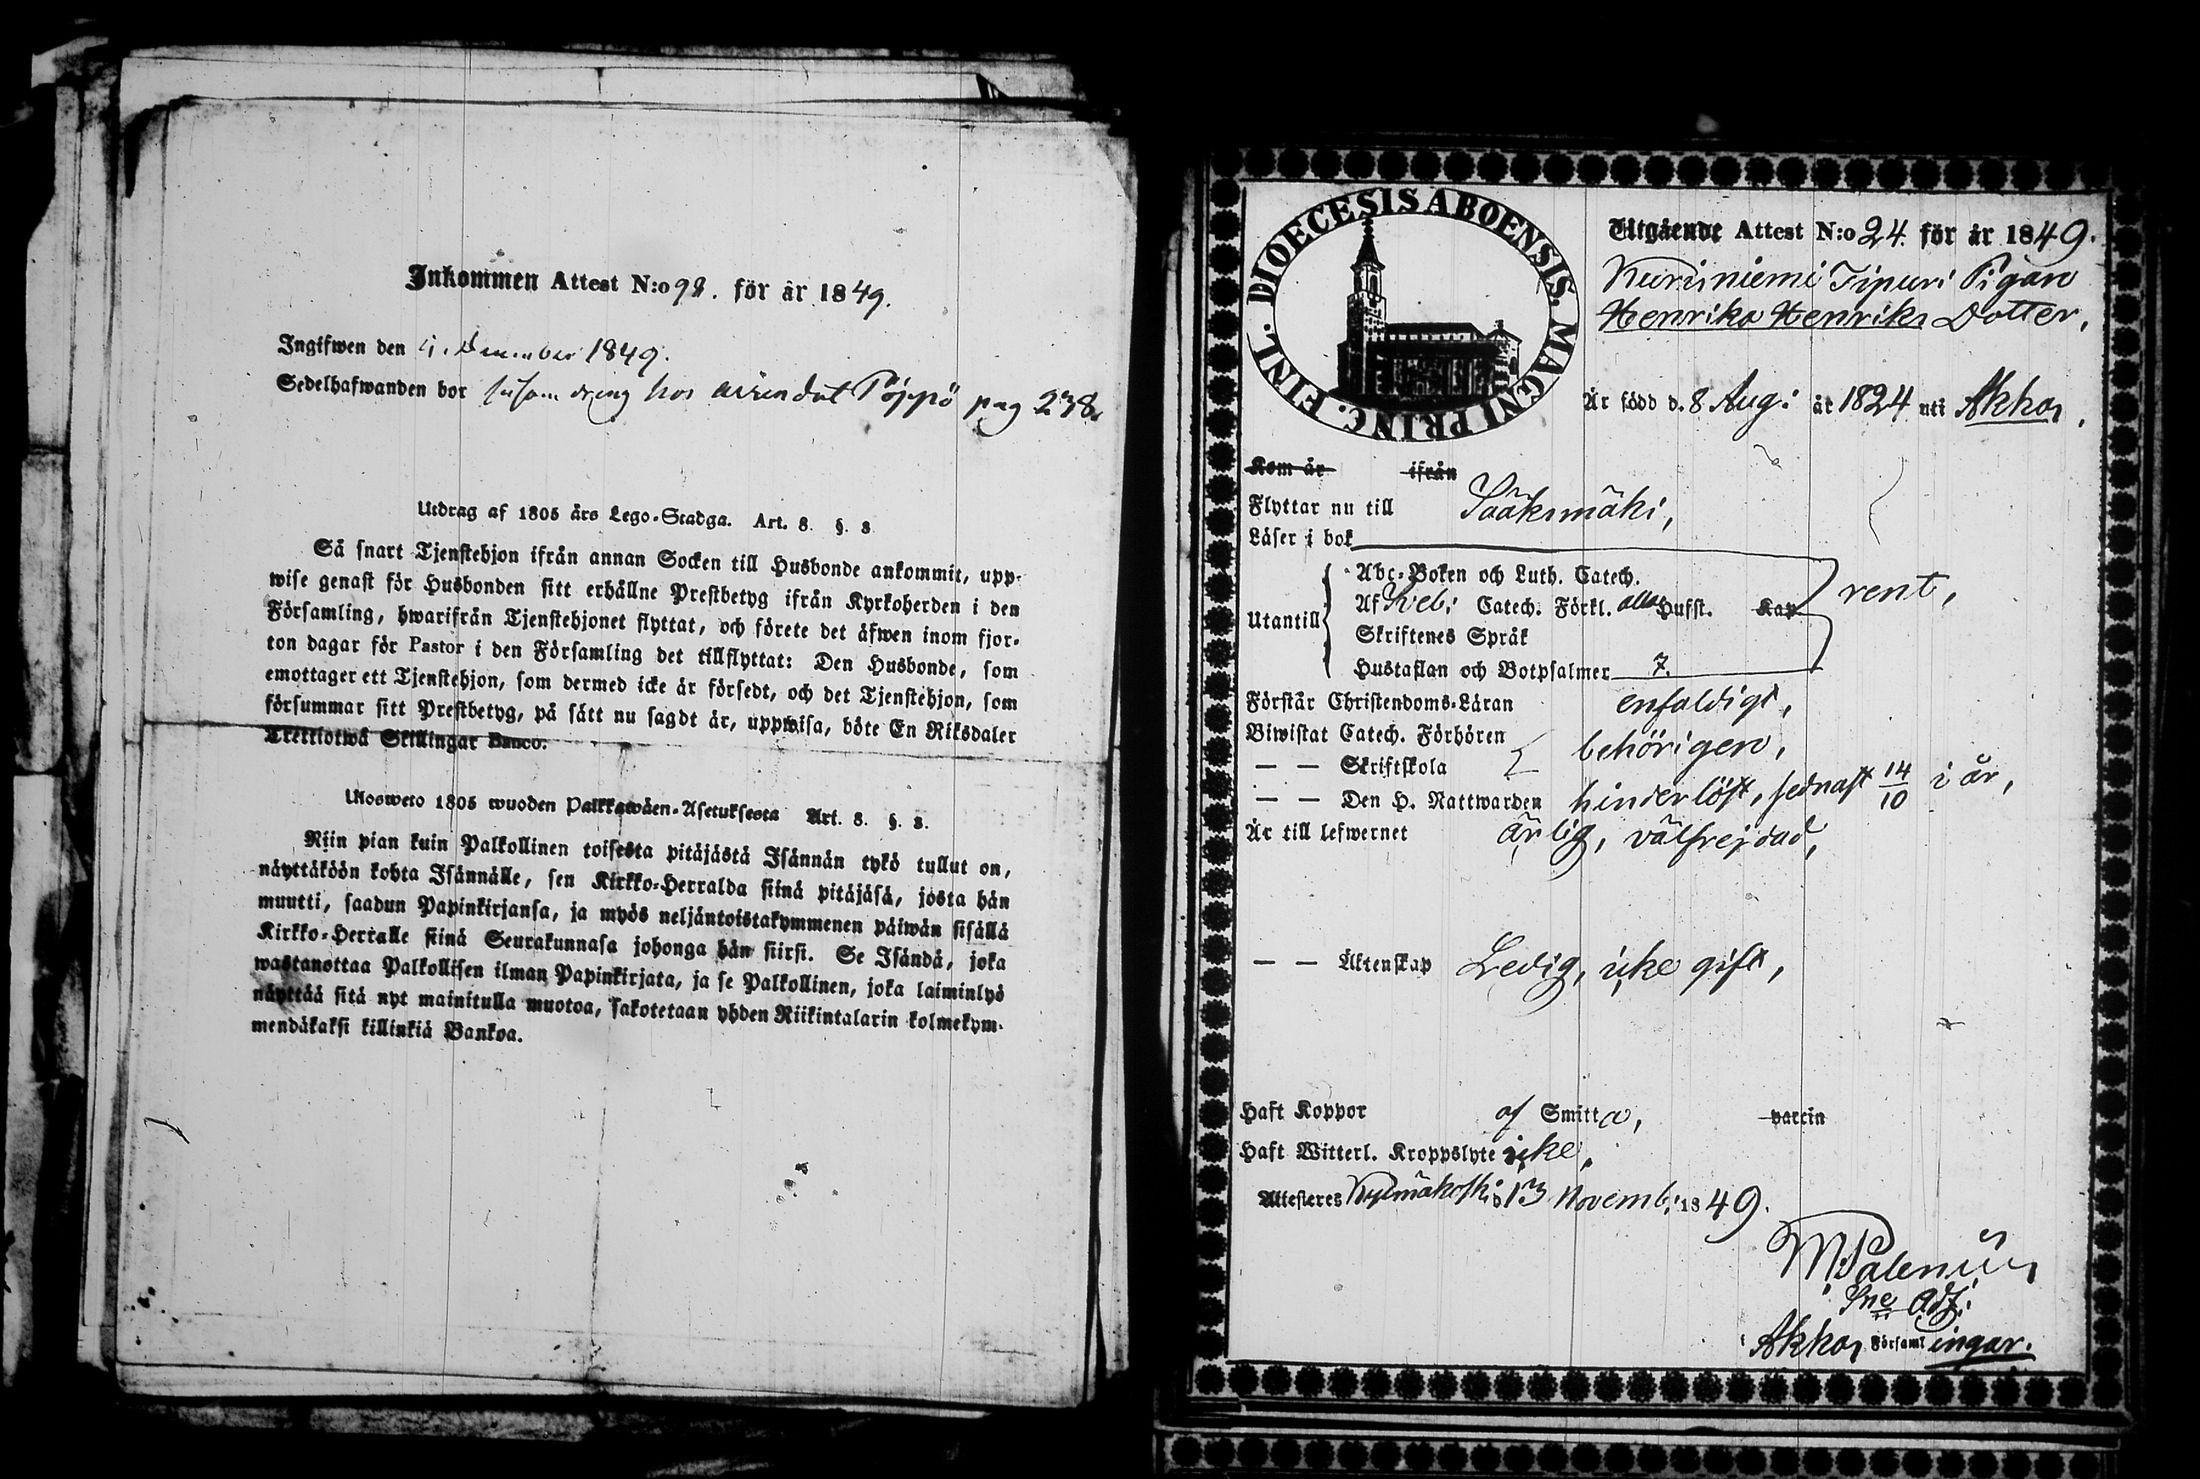 Inkommen Attest N:o 98. för år 1849.
Ingifwen den 4. December 1849.
Sedelhafwanden bor såsom dreng hos Pöppö pag 238.
Utdrag af 1805 års Lego-Stadga. Art. 8. §. 8
Så snart Tjenstehjon ifrån annan Socken till Husbonde ankommit, upp-
wise genast för Husbonden sitt erhållne Prestbetyg ifrån Kyrkoherden i den
Församling, hwarifrån Tjenstehjonet flyttat, och förete det äfwen inom fjor-
ton dagar för Pastor i den Församling det tillflyttat: Den Husbonde, som
emottager ett Tjenstehjon, som dermed icke är försedt, och det Tjenstehjon, som
försummar sitt Prestbetyg, på sätt nu sagdt är, uppwisa, böte En Riksdaler
Trettiotwå Skillingar Banco.
Ulosweto 1805 wuoden Palkkawäen-Asetuksesta Art. 8. §. 8.
Niin pian kuin Palkollinen toisesta pitäjästä Isännän tykö tullut on,
näyttäköön kohta Isännälle, sen Kirkko-Herralda siinä pitäjäsä, josta hän
muutti, saadun Papinkirjansa, ja myös neljäntoistakymmenen päiwän sisällä
Kirkko-Herralle siinä Seurakunnasa johonga hän siirsi. Se Isändä, joka
wastanottaa Palkollisen ilman Papinkirjata, ja se Palkollinen, joka laiminlyö
näyttää sitä nyt mainitulla muotoa, sakotetaan yhden Riikintalarin kolmekym-
mendäkaksi killinkiä Bankoa.
DIOECESIS ABOENSIS. MAGNI PRINC. FINL.
Utgående Attest N:o 24. för år 1849.
Kurisniemi Tipuri Pigan
Henrika Henriks Dotter,
Är född d. 8 Aug: år 1824 uti Akkas,
Kom år ifrån
Flyttar nu till Sääksmäki,
Läser i bok
Utantill
Abc-Boken och Luth. Catech.
Af Sveb: Catech. Förkl. alla Hufst. Kap
Skriftenes Språk
Hustaflan och Botpsalmer 7.
rent,
Förstår Christendoms-Läran enfaldigt,
Biwistat Catech. Förhören
— — Skriftskola behörigen,
— — Den H. Nattwarden hinderlöst, sednast 14/10 i år,
Är till lefwernet ärlig, välfrejdad,
— — Äktenskap Ledig, icke gift,
Haft Koppor af Smitta, vaccin
Haft Witterl. Kroppslyte icke.
Attesteres Kylmäkoski d 13 Novemb: 1849.
M. Palenius
Sne Adj:
i Akkas Församlingar.